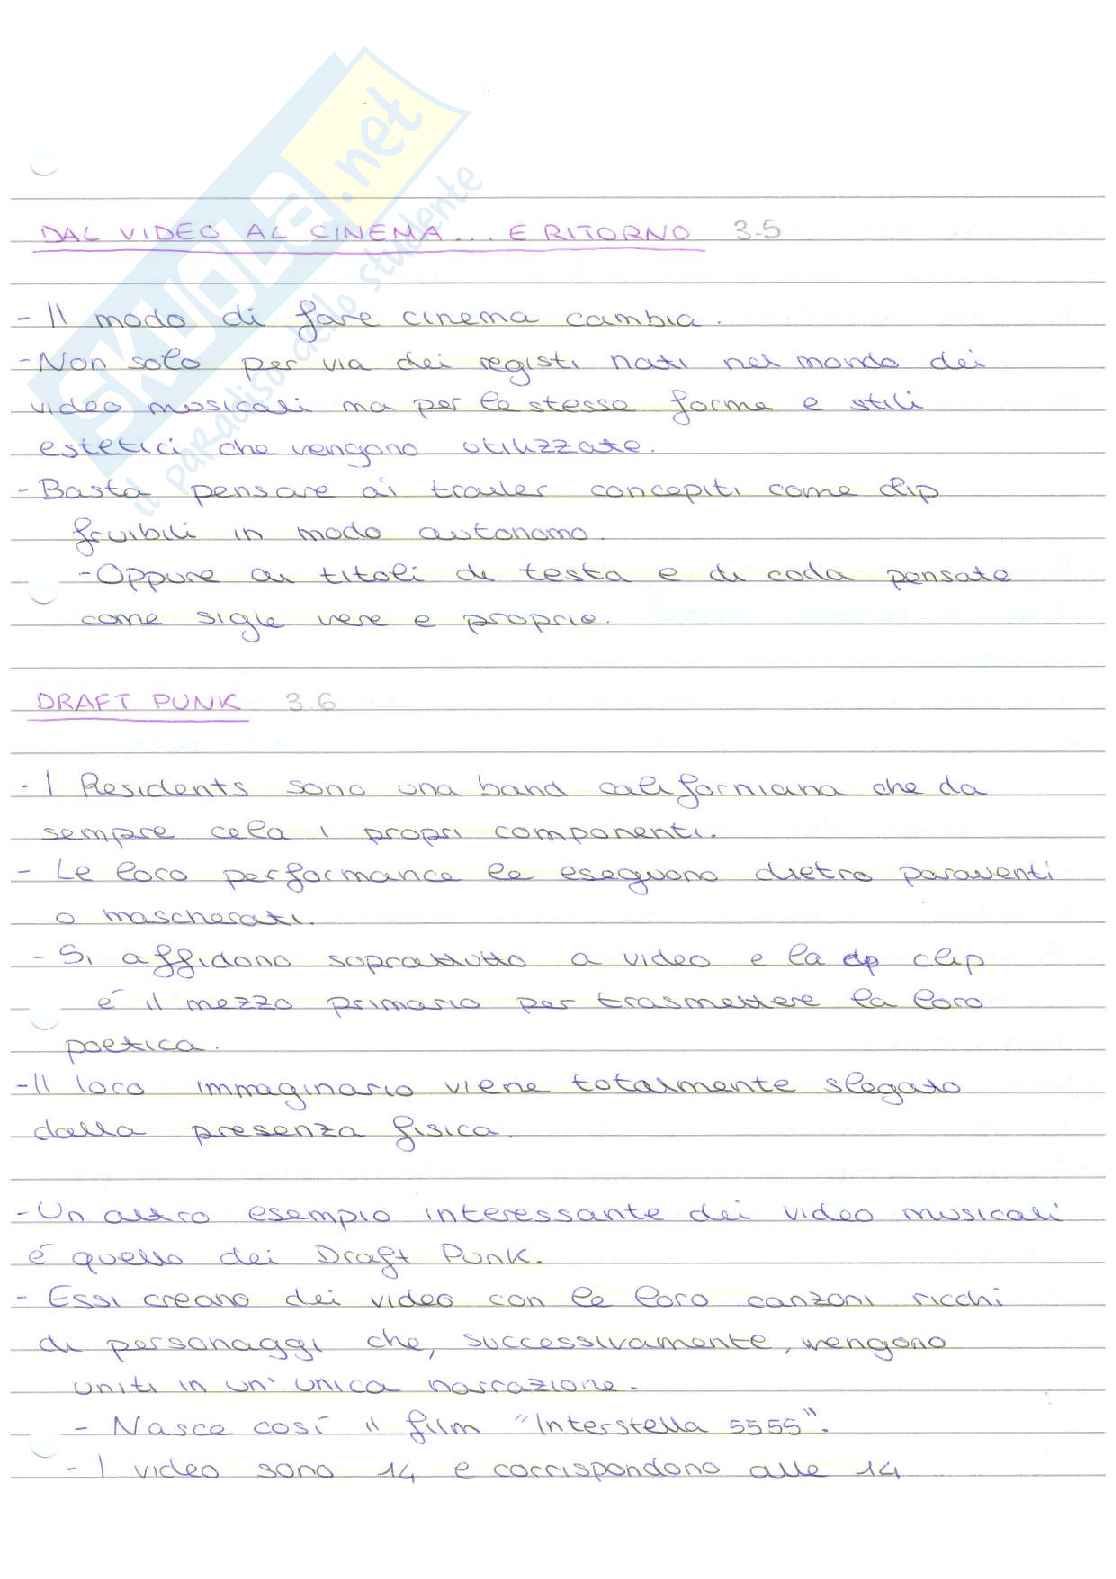 SKUOLA.net
il paradiso dello studente
DAL VIDEO AL CINEMA... E RITORNO 3.5
- Il modo di fare cinema cambia.
- Non solo per via dei registi nati nel mondo dei
video musicali ma per le stesse forme e stili
estetici che vengono utilizzate.
- Basta pensare ai trailer concepiti come clip
fruibili in modo autonomo.
- Oppure ai titoli di testa e di coda pensate
come sigle vere e proprie.
DRAFT PUNK 3.6
- I Residents sono una band californiana che da
sempre cela i propri componenti.
- Le loro performance le eseguono dietro paraventi
o mascherati.
- Si affidano soprattutto a video e la clip
è il mezzo primario per trasmettere la loro
poetica.
- Il loro immaginario viene totalmente slegato
dalla presenza fisica.
- Un altro esempio interessante dei video musicali
è quello dei Draft Punk.
- Essi creano dei video con le loro canzoni ricchi
di personaggi che, successivamente, vengono
uniti in un' unica narrazione.
- Nasce così il film "Interstella 5555".
- I video sono 14 e corrispondono alle 14